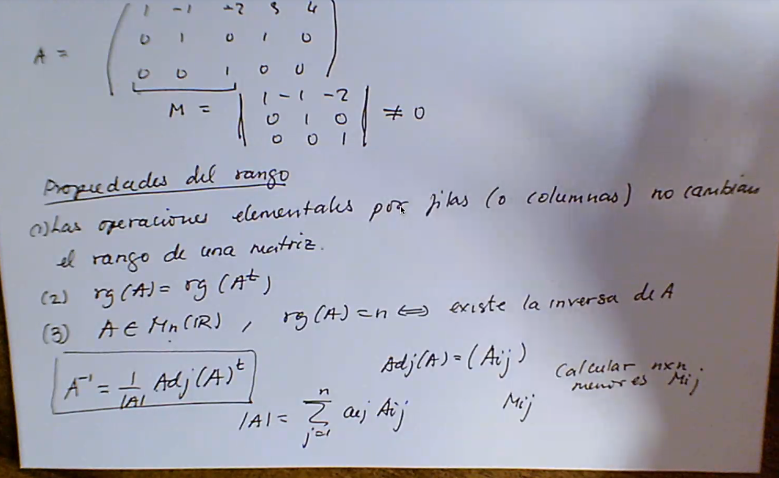 1 -1 -2 3 4
A = 0 1 0 1 0
0 0 1 0 0
M = | 1 -1 -2 | ≠ 0
0 1 0
0 0 1
Propiedades del rango
(1) Las operaciones elementales por filas (o columnas) no cambian
el rango de una matriz.
(2) rg(A) = rg(Aᵗ)
(3) A ∈ Mn(ℝ), rg(A) = n ⟺ existe la inversa de A
A⁻¹ = 1/|A| Adj(A)ᵗ Adj(A) = (Aij) Calcular n×n
menores Mij
|A| = ∑ⁿj=1 aij Aij Mij